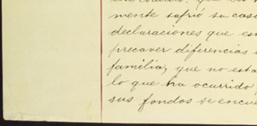 mente sufrió su casa
declaraciones que
precaver diferencias
familia; que no esta
lo que ha ocurrido
sus fondos se encue